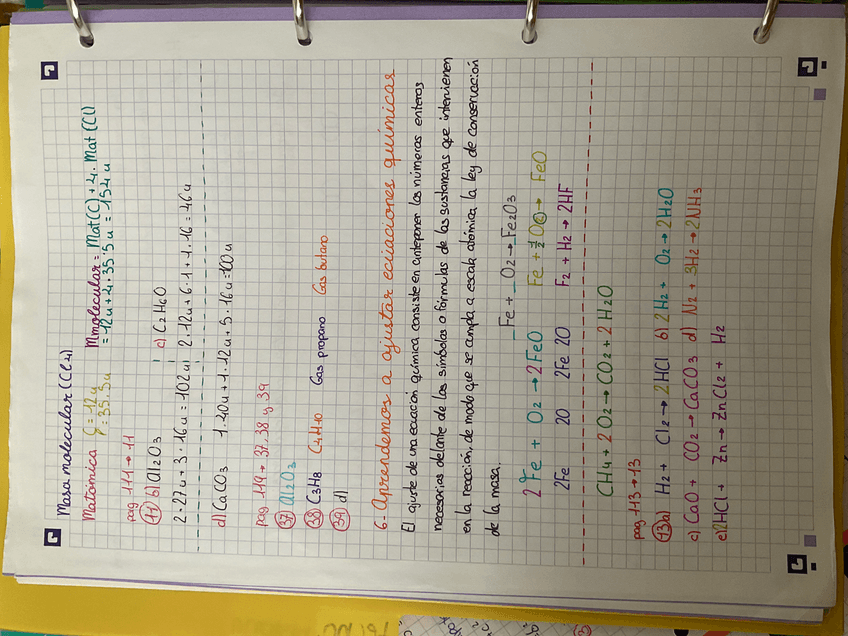 Masa molecular (CCl4)
Matómica C = 12u
= 35.5u
Mmolecular = Mat(C) + 4. Mat (Cl)
= 12u + 4.35'5u = 154u
pag 111 → 11
11 b) Al2O3
c) C2H6O
2.27u + 3.16u = 102u
2.12u + 6.1 + 1.16 = 46u
d) CaCO3 1.40u + 1.12u + 3.16u = 100u
pag 119 → 37, 38 y 39
37 Al2O3
38 C3H8 C4H10 Gas propano Gas butano
39 d)
6- Aprendemos a ajustar ecuaciones químicas
El ajuste de una ecuación química consiste en anteponer los números enteros
necesarios delante de los símbolos o fórmulas de las sustancias que intervienen
en la reacción, de modo que se cumpla a escala atómica la ley de conservación
de la masa.
_Fe + _O2 → Fe2O3
2Fe + O2 → 2FeO
Fe + ½O2 → FeO
2Fe 2O 2Fe 2O
F2 + H2 → 2HF
CH4 + 2O2 → CO2 + 2H2O
pag 113 → 13
13 a) H2 + Cl2 → 2HCl b) 2H2 + O2 → 2H2O
c) CaO + CO2 → CaCO3 d) N2 + 3H2 → 2NH3
e) 2HCl + Zn → ZnCl2 + H2